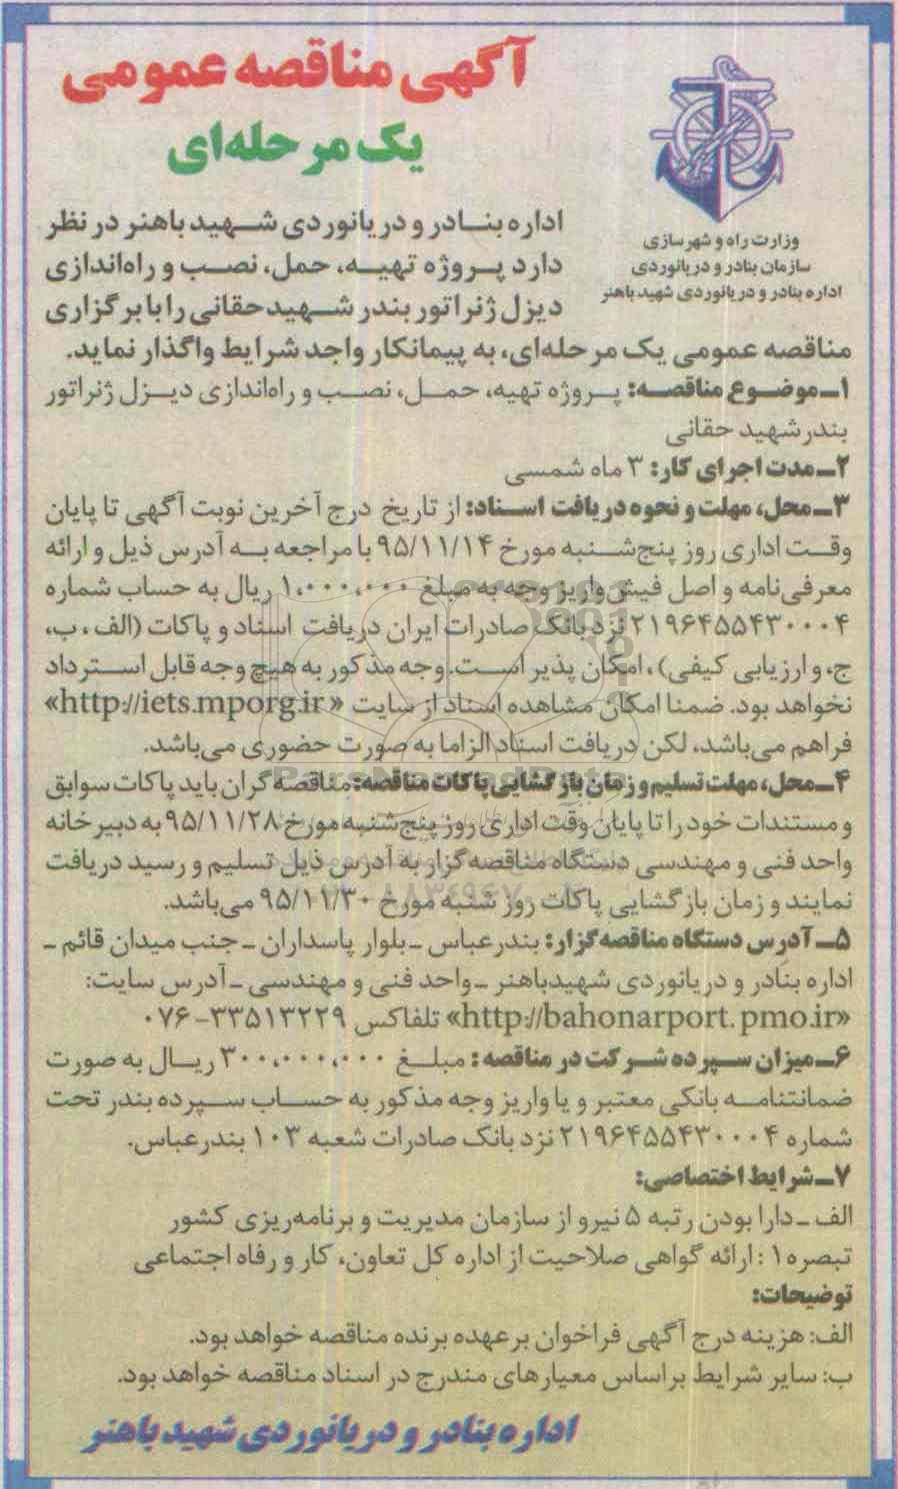 آگهی مناقصه عمومی
یک مرحله‌ای
وزارت راه و شهرسازی
سازمان بنادر و دریانوردی
اداره بنادر و دریانوردی شهید باهنر
اداره بنادر و دریانوردی شهید باهنر در نظر
دارد پروژه تهیه، حمل، نصب و راه‌اندازی
دیزل ژنراتور بندر شهید حقانی را با برگزاری
مناقصه عمومی یک مرحله‌ای، به پیمانکار واجد شرایط واگذار نماید.
۱ـ موضوع مناقصه: پروژه تهیه، حمل، نصب و راه‌اندازی دیزل ژنراتور
بندر شهید حقانی
۲ـ مدت اجرای کار: ۳ ماه شمسی
۳ـ محل، مهلت و نحوه دریافت اسناد: از تاریخ درج آخرین نوبت آگهی تا پایان
وقت اداری روز پنج‌شنبه مورخ ۹۵/۱۱/۱۴ با مراجعه به آدرس ذیل و ارائه
معرفی‌نامه و اصل فیش واریز وجه به مبلغ ۱،۰۰۰،۰۰۰ ریال به حساب شماره
۲۱۹۶۴۵۵۴۳۰۰۰۴ نزد بانک صادرات ایران دریافت اسناد و پاکات (الف، ب،
ج، و ارزیابی کیفی)، امکان پذیر است. وجه مذکور به هیچ وجه قابل استرداد
نخواهد بود. ضمنا امکان مشاهده اسناد از سایت «http://iets.mporg.ir»
فراهم می‌باشد، لکن دریافت اسناد الزاما به صورت حضوری می‌باشد.
۴ـ محل، مهلت تسلیم و زمان بازگشایی پاکات مناقصه: مناقصه گران باید پاکات سوابق
و مستندات خود را تا پایان وقت اداری روز پنج‌شنبه مورخ ۹۵/۱۱/۲۸ به دبیرخانه
واحد فنی و مهندسی دستگاه مناقصه گزار به آدرس ذیل تسلیم و رسید دریافت
نمایند و زمان بازگشایی پاکات روز شنبه مورخ ۹۵/۱۱/۳۰ می‌باشد.
۵ـ آدرس دستگاه مناقصه‌گزار: بندرعباس ـ بلوار پاسداران ـ جنب میدان قائم ـ
اداره بنادر و دریانوردی شهیدباهنر ـ واحد فنی و مهندسی ـ آدرس سایت:
«http://bahonarport.pmo.ir» تلفاکس ۳۳۵۱۳۲۲۹-۰۷۶
۶ـ میزان سپرده شرکت در مناقصه: مبلغ ۳۰۰،۰۰۰،۰۰۰ ریال به صورت
ضمانتنامه بانکی معتبر و یا واریز وجه مذکور به حساب سپرده بندر تحت
شماره ۲۱۹۶۴۵۵۴۳۰۰۰۴ نزد بانک صادرات شعبه ۱۰۳ بندرعباس.
۷ـ شرایط اختصاصی:
الف ـ دارا بودن رتبه ۵ نیرو از سازمان مدیریت و برنامه‌ریزی کشور
تبصره۱: ارائه گواهی صلاحیت از اداره کل تعاون، کار و رفاه اجتماعی
توضیحات:
الف: هزینه درج آگهی فراخوان بر عهده برنده مناقصه خواهد بود.
ب: سایر شرایط براساس معیارهای مندرج در اسناد مناقصه خواهد بود.
اداره بنادر و دریانوردی شهید باهنر